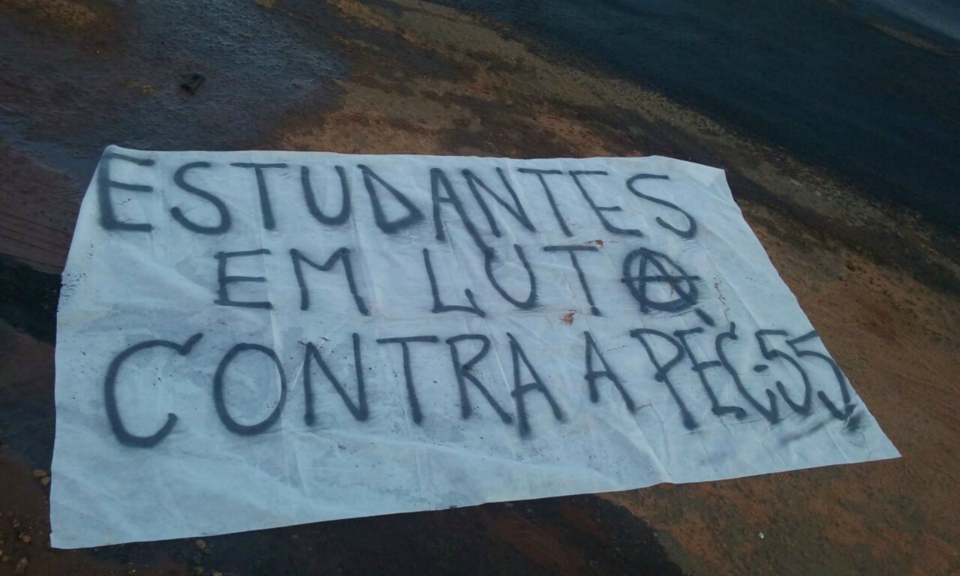 ESTUDANTES
EM LUTA
CONTRA A PEC-55